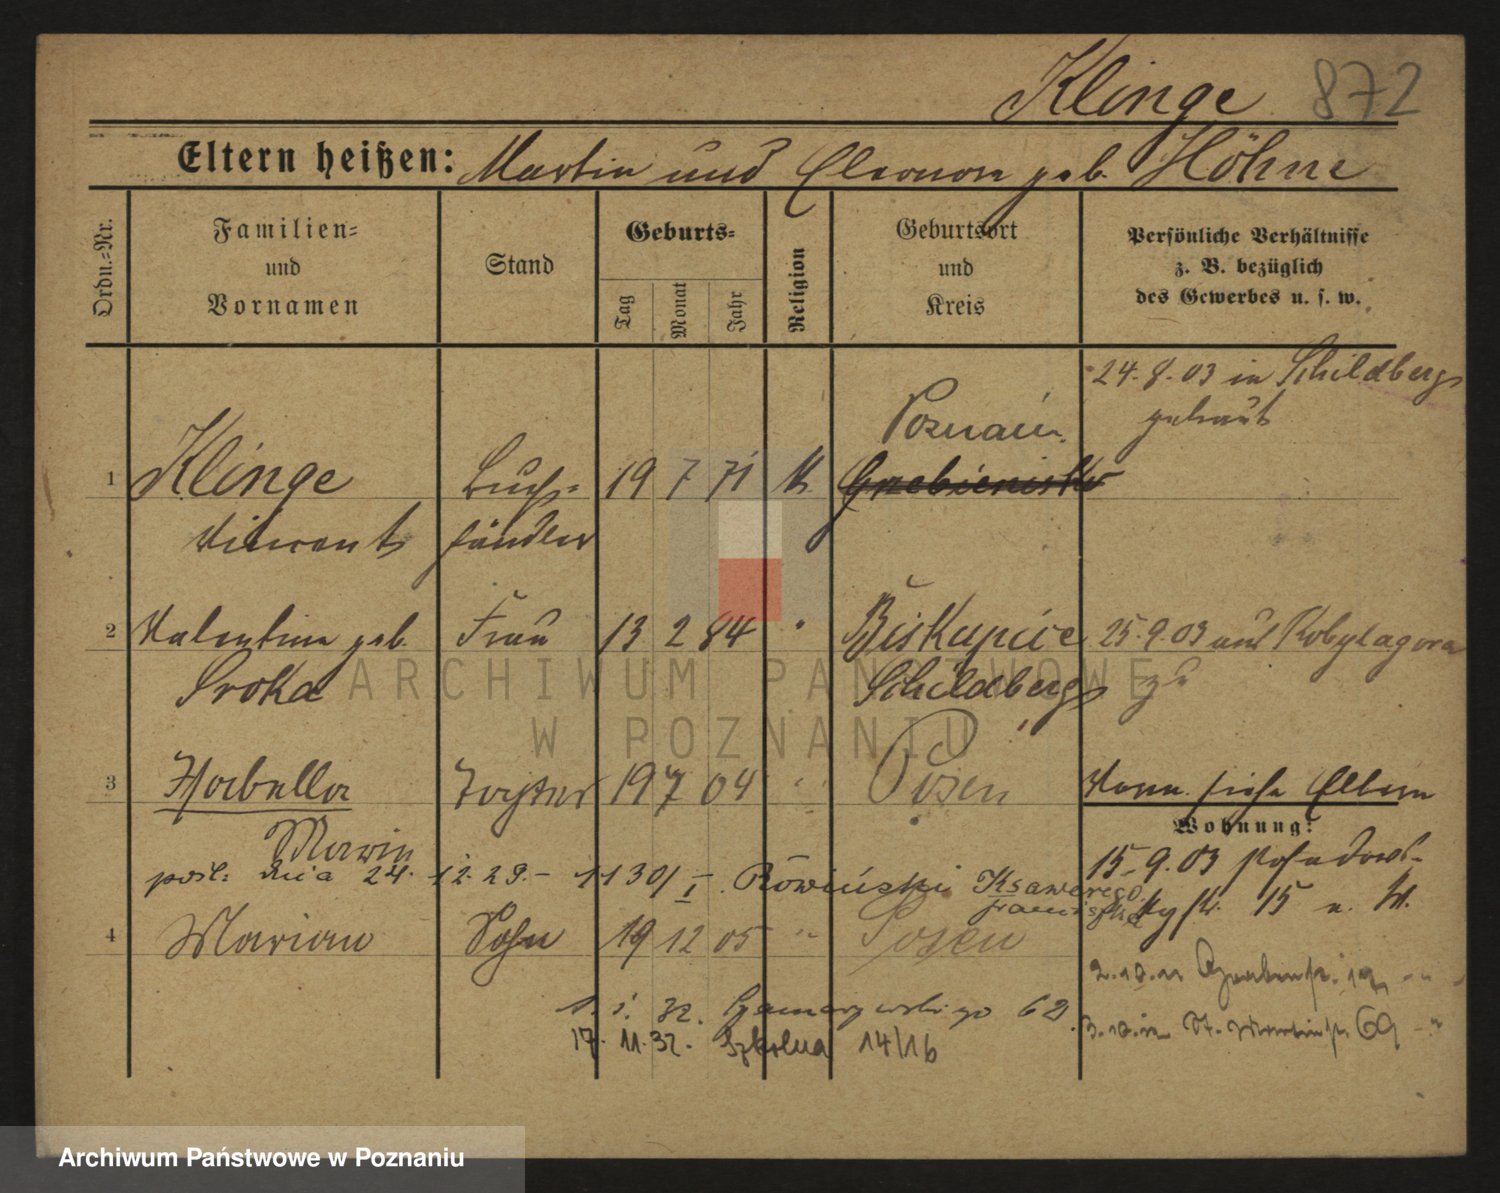 Klinge 872
Eltern heißen: Martin und Eleonore geb. Höhne
Ordn.-Nr.
Familien-
und
Vornamen
Stand
Geburts-
Tag
Monat
Jahr
Religion
Geburtsort
und
Kreis
Persönliche Verhältnisse
z. B. bezüglich
des Gewerbes u. s. w.
24.8.03 in Schildberg
getraut
Poznań
1 Klinge Buch- 19 7 71 k.
Vincent händler
2 Valentine geb. Frau 13 2 84 " Biskupice 25.9.03 aus Kobylagora
Sroka Schildberg zu
3 Isabella Tochter 19 7 04 " Posen Verw. siehe Eltern
Maria
Wohnung:
24.12.29.- Ksawerego
Franciszka
15.9.03
15 u. W.
4 Marian Sohn 19 12 05 " Posen
2.10.11 19
32. 62
3.10.12 St. Martinstr 69 "
17.11.32. Szkolna 14/16
ARCHIWUM PAŃSTWOWE
W POZNANIU
Archiwum Państwowe w Poznaniu